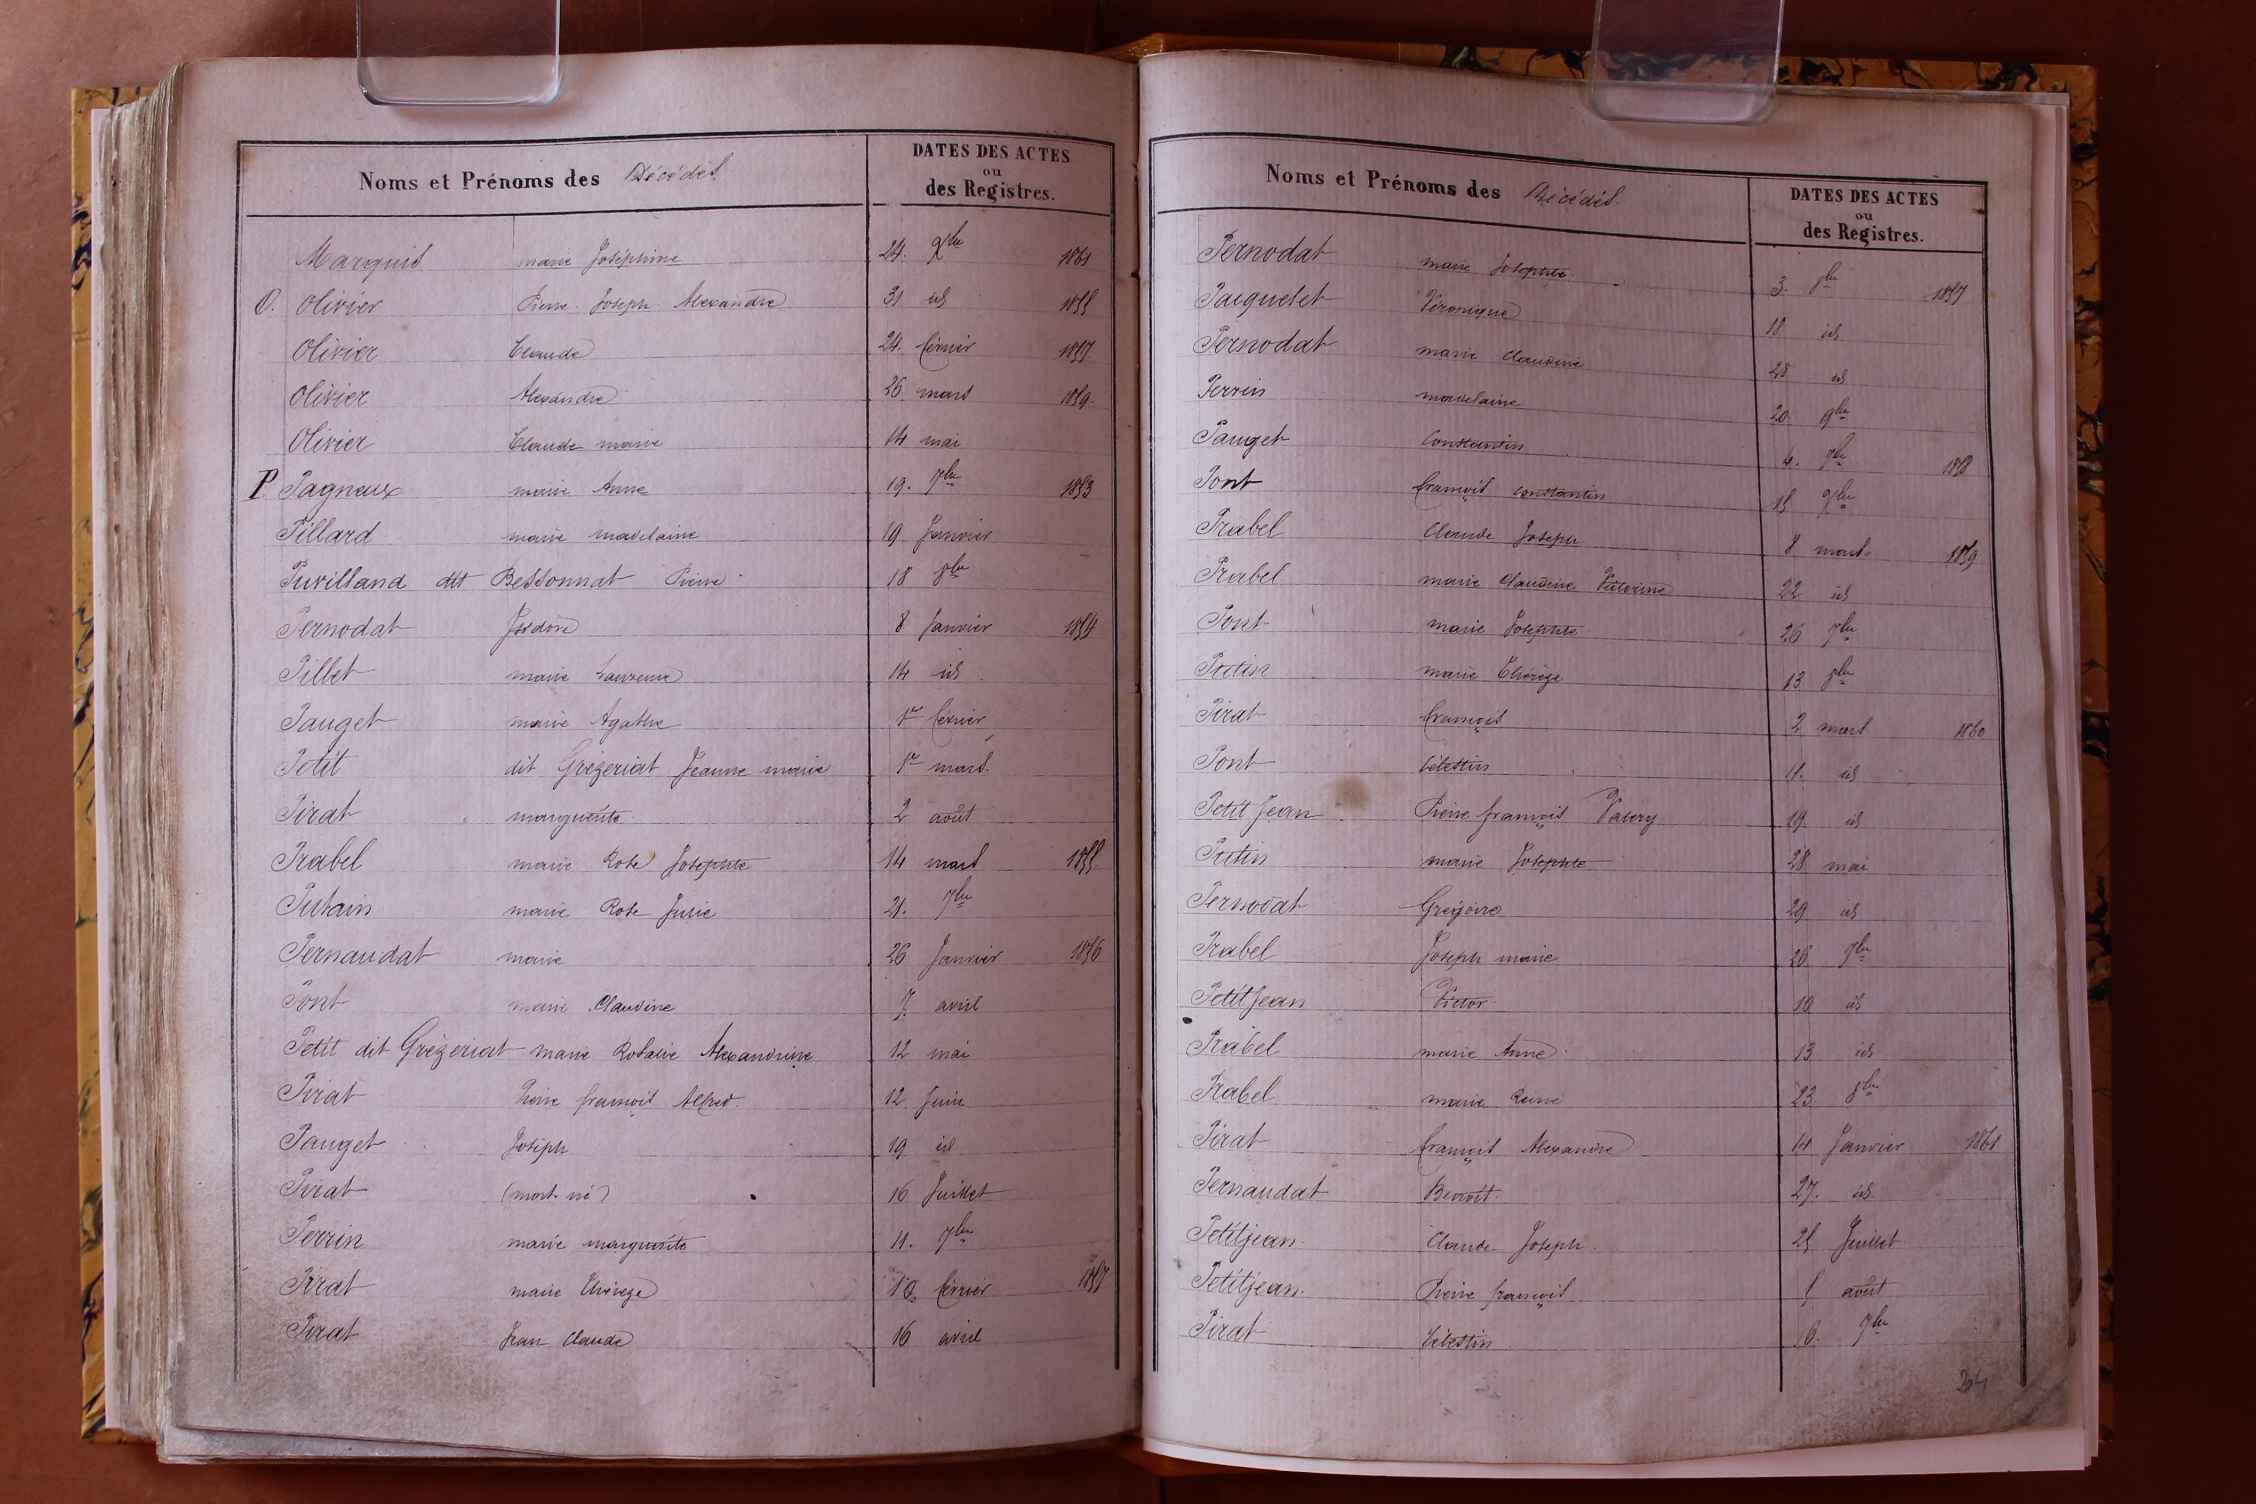 Noms et Prénoms des Décédés.
DATES DES ACTES
ou
des Registres.
Marquis marie Joséphine 24. Xbre 1861
O. Olivier Pierre Joseph Alexandre 31 id 1855
Olivier Claude 24. février 1857
Olivier Alexandre 26 mars 1859
Olivier Claude marie 14 mai
P Pagneux marie Anne 19. 7bre 1853
Pillard marie madelaine 19 Janvier
Puvilland dit Bessonnat Pierre 18 8bre
Pernodat Isidore 8 Janvier 1854
Pillet marie Laurence 14 id
Pauget marie Agathe 1er février
Petit dit Grézeriat Jeanne marie 1er mars
Pirat marguerite 2 août
Prabel marie Rose Josephte 14 mars 1855
Putain marie Rose Julie 21. 7bre
Pernaudat marie 26 Janvier 1856
Pont marie Claudine 7. avril
Petit dit Grézeriat marie Rosalie Alexandrine 12 mai
Pirat Pierre françois Alfred 12 Juin
Pauget Joseph 19 id
Pirat (mort né) 16 Juillet
Perrin marie marguerite 11. 7bre
Pirat marie Thérèze 10. février 1857
Pirat Jean Claude 16 avril
Noms et Prénoms des Décédés.
DATES DES ACTES
ou
des Registres.
Pernodat marie Josephte 3. 8bre 1857
Paequelet Véronique 18 id
Pernodat marie Claudine 28 id
Perrin madelaine 20 9bre
Pauget Constantin 4. 7bre 1858
Pont françois constantin 15 Xbre
Prabel Claude Joseph 8 mars 1859
Prabel marie Claudine Victorine 22 id
Pont marie Josephte 26 7bre
Putin marie Thérèze 13 8bre
Pirat françois 2 mars 1860
Pont Célestin 11. id
Petit Jean Pierre françois Valery 19 id
Putin marie Josephte 28 mai
Pernodat Grégoire 29 id
Prabel Joseph marie 28 7bre
Petit Jean Victor 10 id
Prabel marie Anne 13 id
Prabel marie Reine 23 8bre
Pirat françois Alexandre 11 Janvier 1861
Pernaudat Benoît 27. id
Petitjean Claude Joseph 25 Juillet
Petitjean Pierre françois 5 août
Pirat Célestin 6. 9bre
204